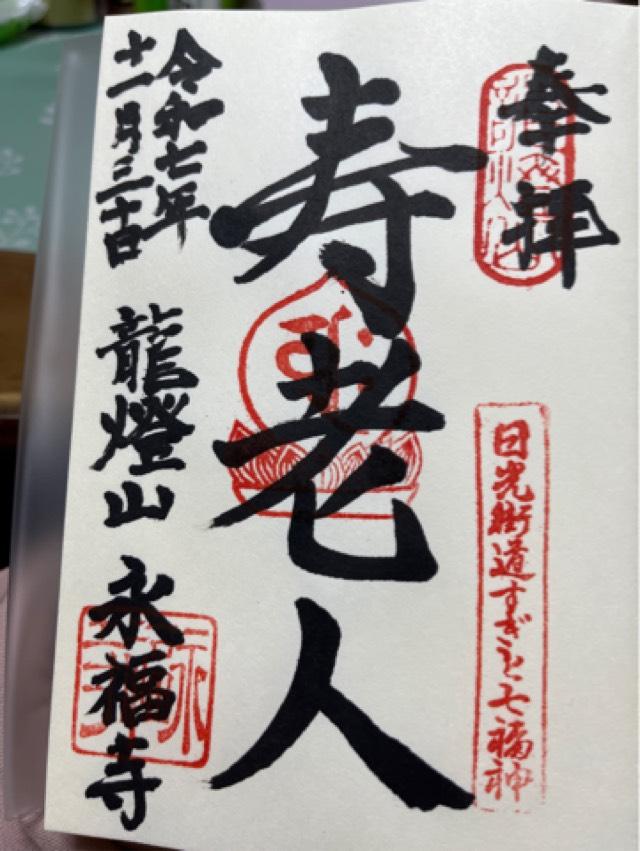 奉拝
日光街道すぎと七福神
寿老人
令和七年
十一月三十日
龍燈山 永福寺